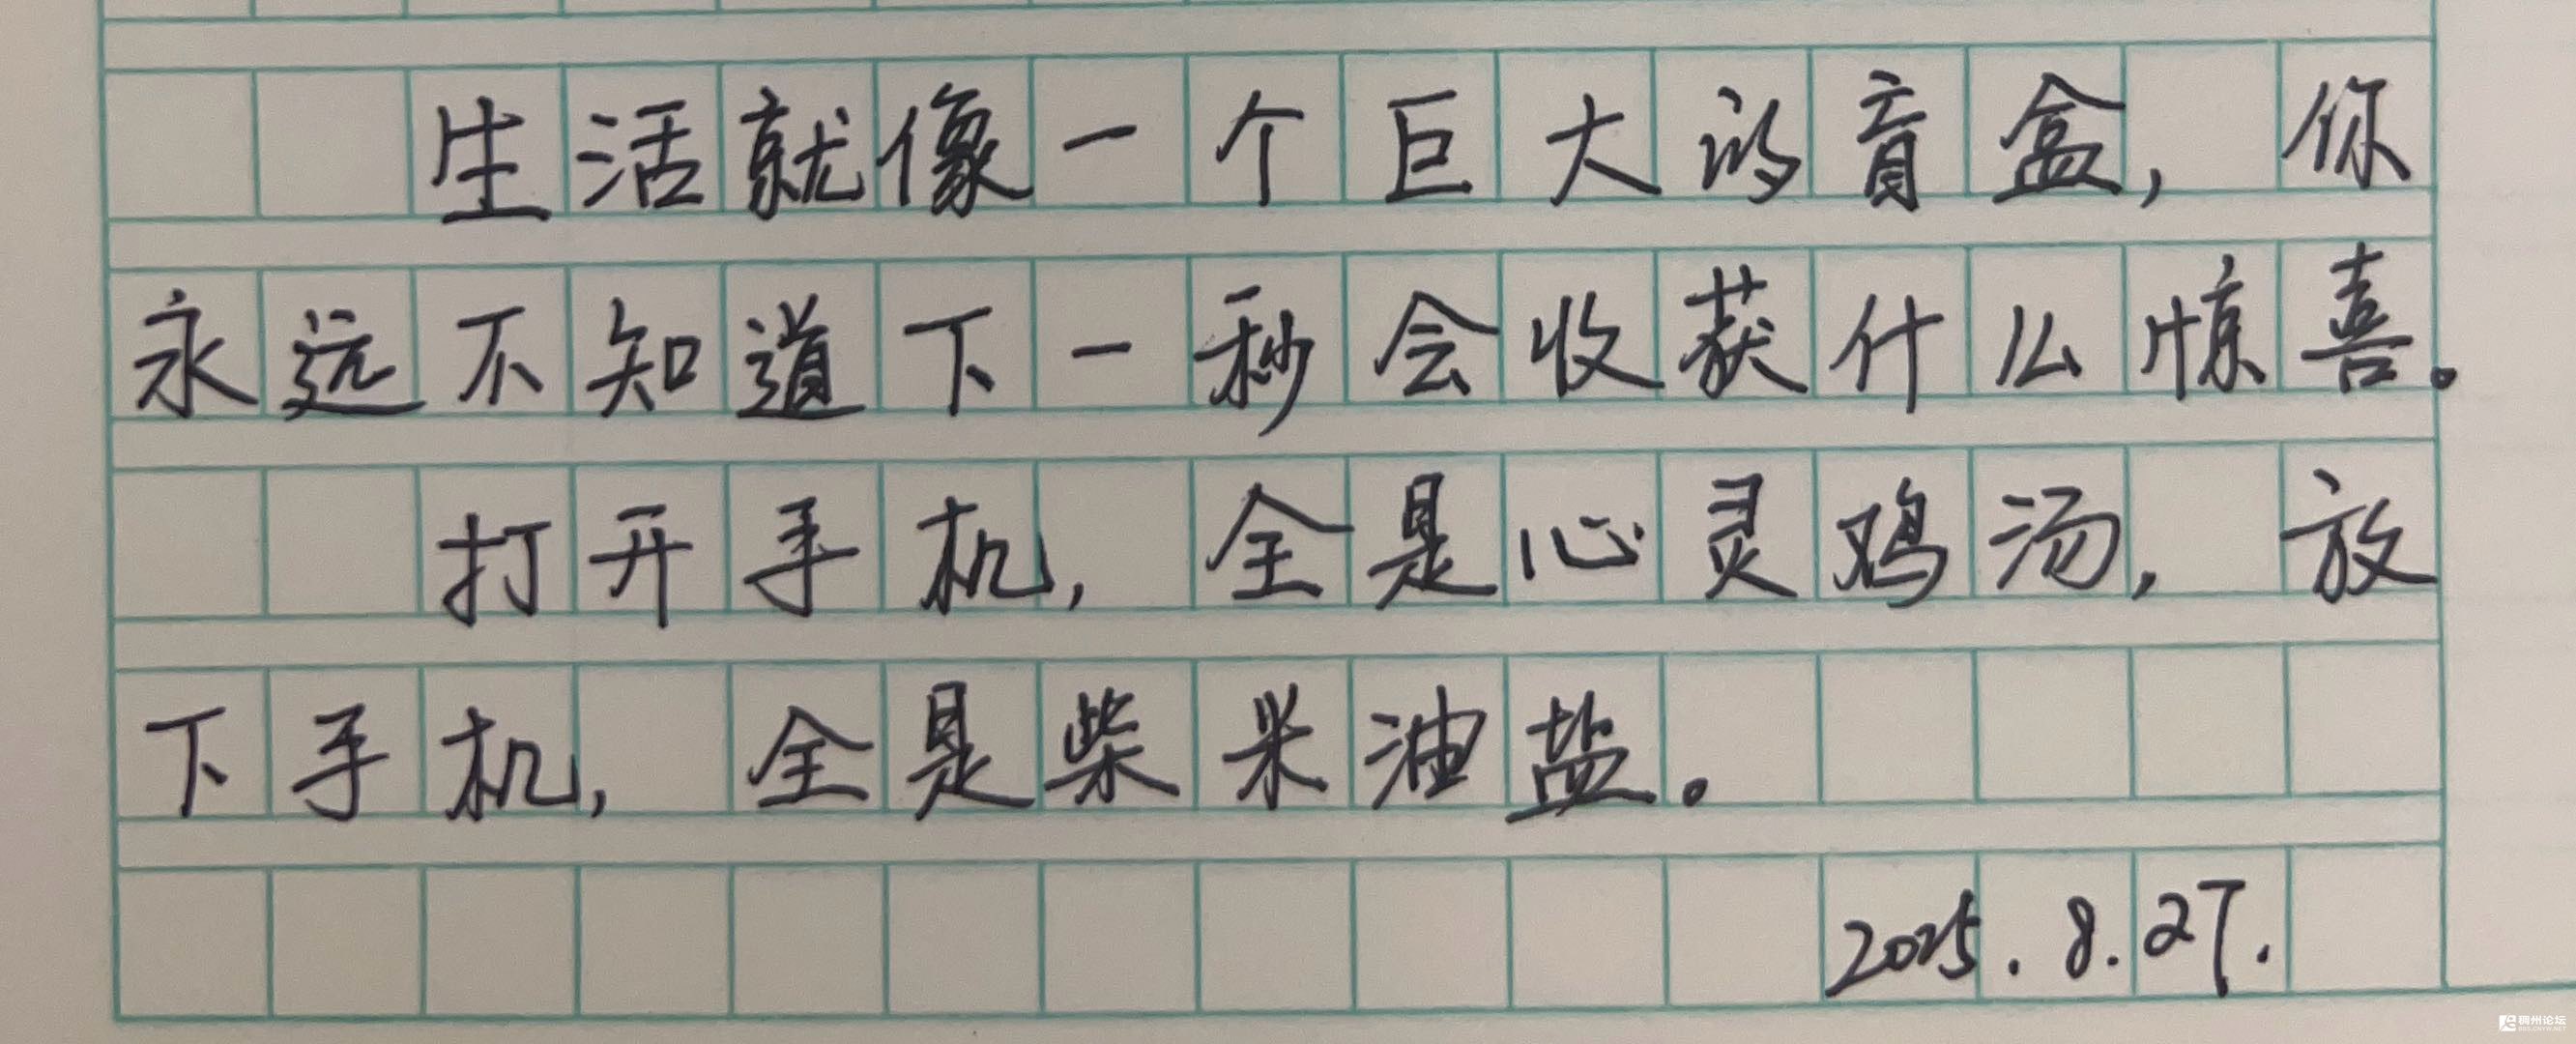 生活就像一个巨大的盲盒，你
永远不知道下一秒会收获什么惊喜。
打开手机，全是心灵鸡汤，放
下手机，全是柴米油盐。
2025.8.27.
稠州论坛